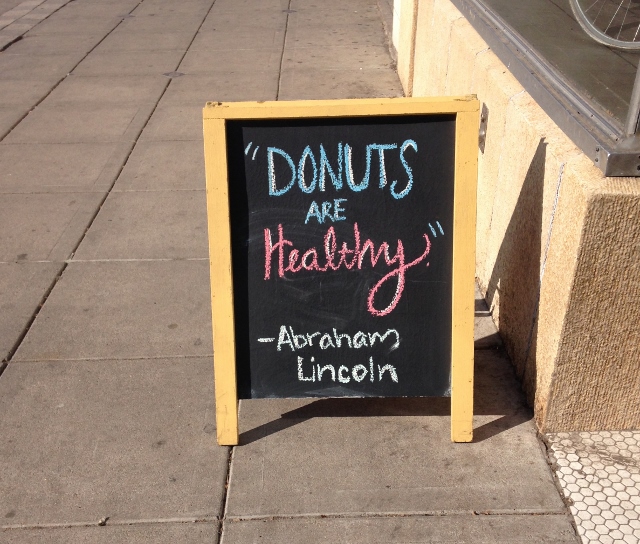 "DONUTS
ARE
Healthy!"
-Abraham
Lincoln